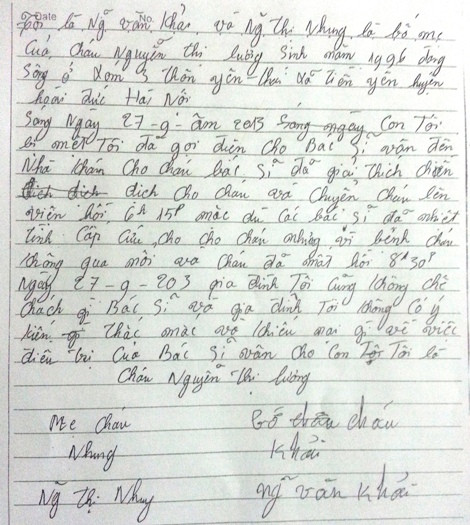 Date No.
Tôi là Ng~ văn Khải và Ng~ Thị Nhung là bố mẹ
Của Cháu Nguyễn thị lương Sinh năm 1996 đang
Sống ở xóm 3 thôn yên thái xã tiền yên huyện
hoài đức Hà Nôi
Sáng Ngày 27-9-âm 2013 Sáng ngày con Tôi
bị mệt Tôi đã gọi điện cho Bác Sĩ vân đến
Nhà khám cho cháu bác sĩ đã giải thích
dịch cho cháu và chuyển cháu lên
viện hồi 6h 15p mặc dù các bác sĩ đã nhiệt
tình Cấp Cứu cho cho cháu nhưng vì bệnh cháu
không qua và cháu đã mất hồi 8h30p
Ngày 27-9-203 gia đình Tôi cũng không chê
trách gì Bác Sĩ và gia đình Tôi không có ý
kiến gì thắc mắc và khiếu mại gì về việc
điều trị Của Bác Sĩ vân cho con Tôi là
Cháu Nguyễn thị lương
Mẹ cháu Bố cháu
Nhung Khải
Ng~ Thị Nhung Ng~ văn Khải